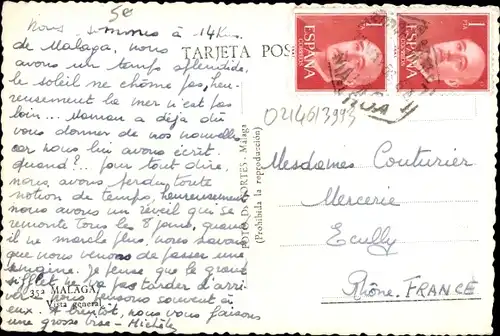 5€
Nous sommes à 14 Kms
de Malaga, nous
avons un temps splendide,
le soleil ne chôme pas, heu-
reusement la mer n'est pas
loin... Maman a déjà dû
vous donner de nos nouvelles
car nous lui avons écrit.
quand?... pour tout dire,
nous avons perdu toute
notion de temps, heureusement
nous avons un réveil qui se
remonte tous les 8 jours, quand
il ne marche plus, nous savons
que nous venons de passer une
semaine. Je pense que le grand
sifflet ne va pas tarder d'arri-
ver. Nous pensons souvent à
eux. A bientôt, nous vous faisons
une grosse bise - Michèle
TARJETA POS
352 MALAGA
Vista general
FOTO D. CORTES. Málaga
(Prohibida la reproducción)
1
PTA
ESPAÑA
CORREOS
1
PTA
ESPAÑA
CORREOS
0214613993
Mesdames Couturier
Mercerie
Ecully
Rhône. FRANCE